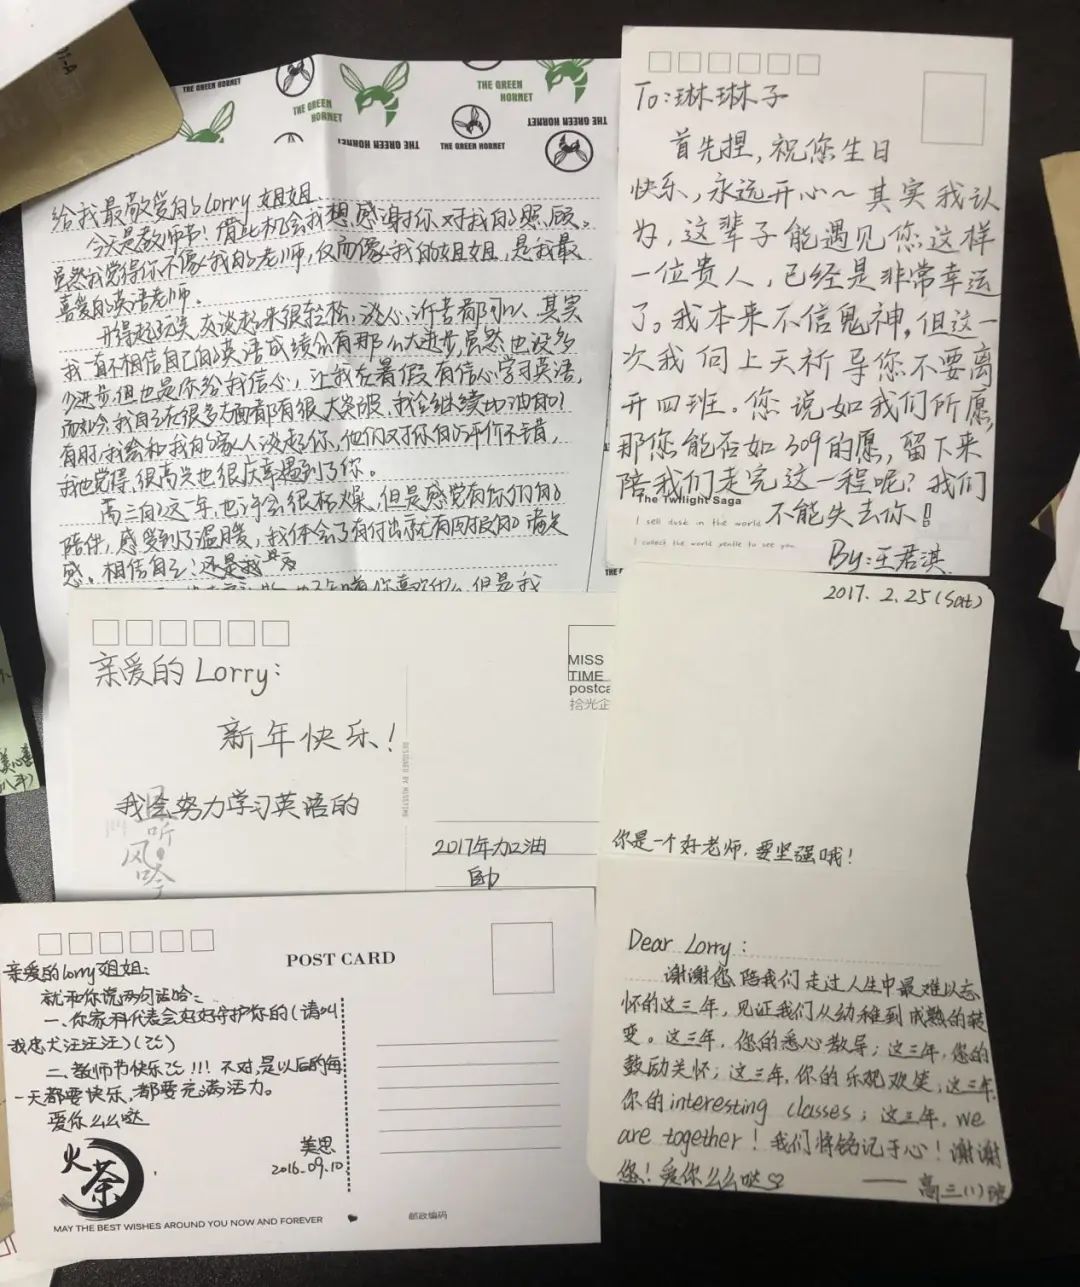 THE GREEN HORNET
THE GREEN
HORNET
THE GREEN
HORNET
THE GREEN HORNET
THE GREEN HORNET
THE GREEN HORNET
给我最敬爱的Lorry 姐姐
今天是教师节！借此机会我想感谢你对我的照顾。
虽然我觉得你不像我的老师，反而像我的姐姐，是我最
喜爱的英语老师。
开得起玩笑，友谈起来很轻松，谈心，诉苦都可以，其实
我一直不相信自己的英语成绩会有那么大进步，虽然也没多
少进步，但也是你给我信心，让我在暑假有信心学习英语，
而如今我自己在很多方面都有很大突破，我会继续加油的！
有时，我会和我的家人谈起你，他们对你的评价不错，
我也觉得，很高兴也很庆幸遇到了你。
高三的这一年，也许会很枯燥，但是感觉有你们的
陪伴，感受到了温暖，我体会了有付出就有回报的满足
感。相信自己！还是我
你喜欢什么，但是我
To：琳琳子
首先捏，祝您生日
快乐，永远开心～其实我认
为，这辈子能遇见您这样
一位贵人，已经是非常幸运
了。我本来不信鬼神，但这一
次我向上天祈导您不要离
开四班。您说如我们所愿，
那您能否如309的愿，留下来
陪我们走完这一程呢？我们
The Twilight Saga
不能失去你！
I sell dusk in the world
I collect the world gentle to see you
By：王君淇
2017. 2.25(Sat)
你是一个好老师，要坚强哦！
Dear Lorry：
谢谢您陪我们走过人生中最难以忘
怀的这三年，见证我们从幼稚到成熟的转
变。这三年，您的悉心教导；这三年，您的
鼓励关怀；这三年，你的乐观欢笑；这三年
你的interesting classes；这三年，we
are together！我们将铭记于心！谢谢
您！爱你么么哒♡
——高三（1）班
亲爱的 Lorry：
新年快乐！
我会努力学习英语的
且听
风吟
MISS
TIME
postca
拾光企
DESIGNED BY MISSTIME
2017年加油
POST CARD
亲爱的Lorry姐姐：
就和你说两句话哈：
一、你家科代表会好好守护你的（请叫
我忠犬汪汪汪）
二、教师节快乐！！！不对，是以后的每
一天都要快乐，都要充满活力。
爱你么么哒
美思
2016.09.10
火
茶
MAY THE BEST WISHES AROUND YOU NOW AND FOREVER
邮政编码